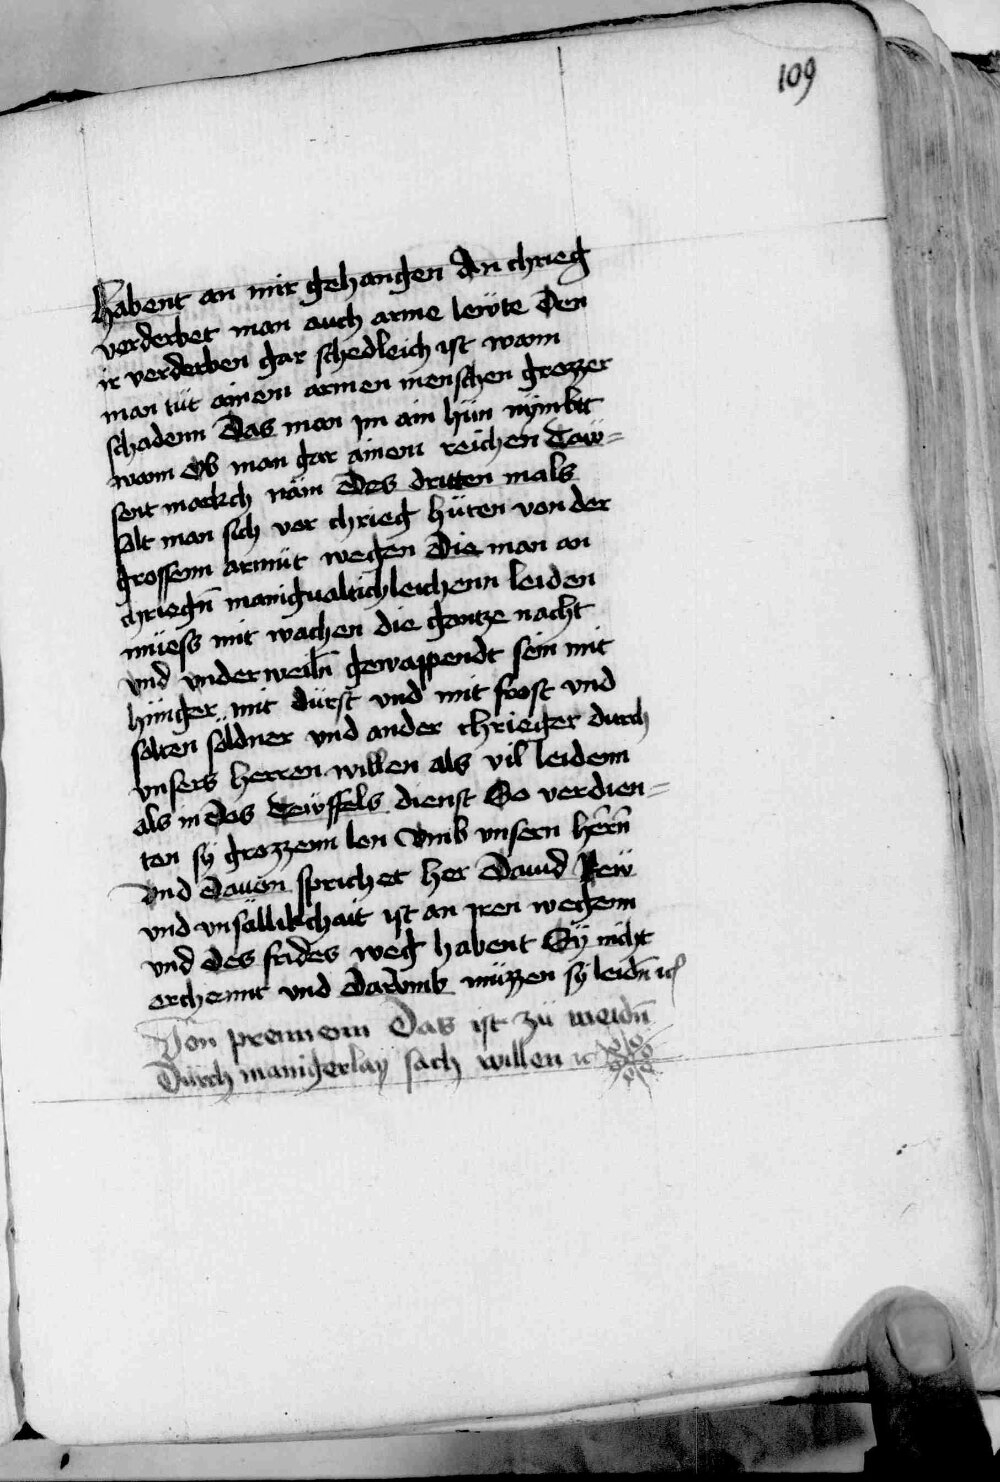 109
habent an mir gehangen An chrieg
verderbet man auch arme lewte Den
ir verderben gar schedleich ist wann
man tüt ainem armen menschen grozzer
schadenn Das man jm ain hün nymbtt
wann Ob man gar ainem reichen Taw=
sent markch näm Des dritten mals
solt man sich vor chrieg hüten von der
grossenn armüt wegen Die man an
chriegn̄ manigualtichleichenn leiden
müess mit wachen die gantze nacht
vnd vnderweiln̄ gewappendt sein mit
hünger mit dürst vnd mit frost vnd
solten söldner vnd ander chrieger durch
vnsers herren willen als vil leidenn
als in Des Tewffels dienst So verdien=
ten sÿ grozzenn lon vmb vnsern hern̄
vnd Dauon sprichet her Dauid Rew
vnd vnsällikchait ist an jren wegenn
vnd des frides weg habent Sÿ nicht
erchennt vnd Darvmb müzzen sÿ leidn̄ ꝛc
Von prennenn Das ist zü meidn̄
Durch manigerlaÿ sach willen ꝛc